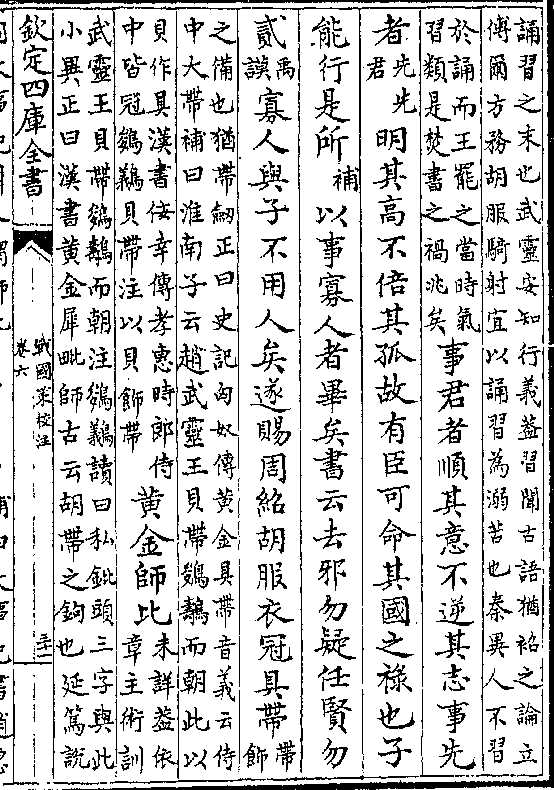 誦習之末也武靈安知行義葢習聞古語猶袑之論立
傅爾方務胡服騎射宜以誦習為溺苦也秦異人不習
於誦而王罷之當時氣
習類是焚書之禍兆矣
事君者順其意不逆其志事先
者
先
君
先明其髙不倍其孤故有臣可命其國之祿也子
能行是所
補
以事寡人者畢矣書云去邪勿疑任賢勿
貳
禹
謨
寡人與子不用人矣遂賜周紹胡服衣冠具帶
帶
飾
之備也猶帶劒正曰史記匈奴傳黄金具帶音義云侍
中大帶補曰淮南子云趙武靈王貝帶鵕鸃而朝此以
貝作具漢書佞幸傳孝惠時郎侍
中皆冠鵕鸃貝帶注以貝飾帶
黄金師比
未詳葢依
章主術訓
武靈王貝帶鵕鸃而朝注鵕鸃讀曰私鈚頭三字與此
小異正曰漢書黄金犀毗師古云胡帶之鉤也延篤說
欽定四庫全書
戰國策校注
卷六
三十二